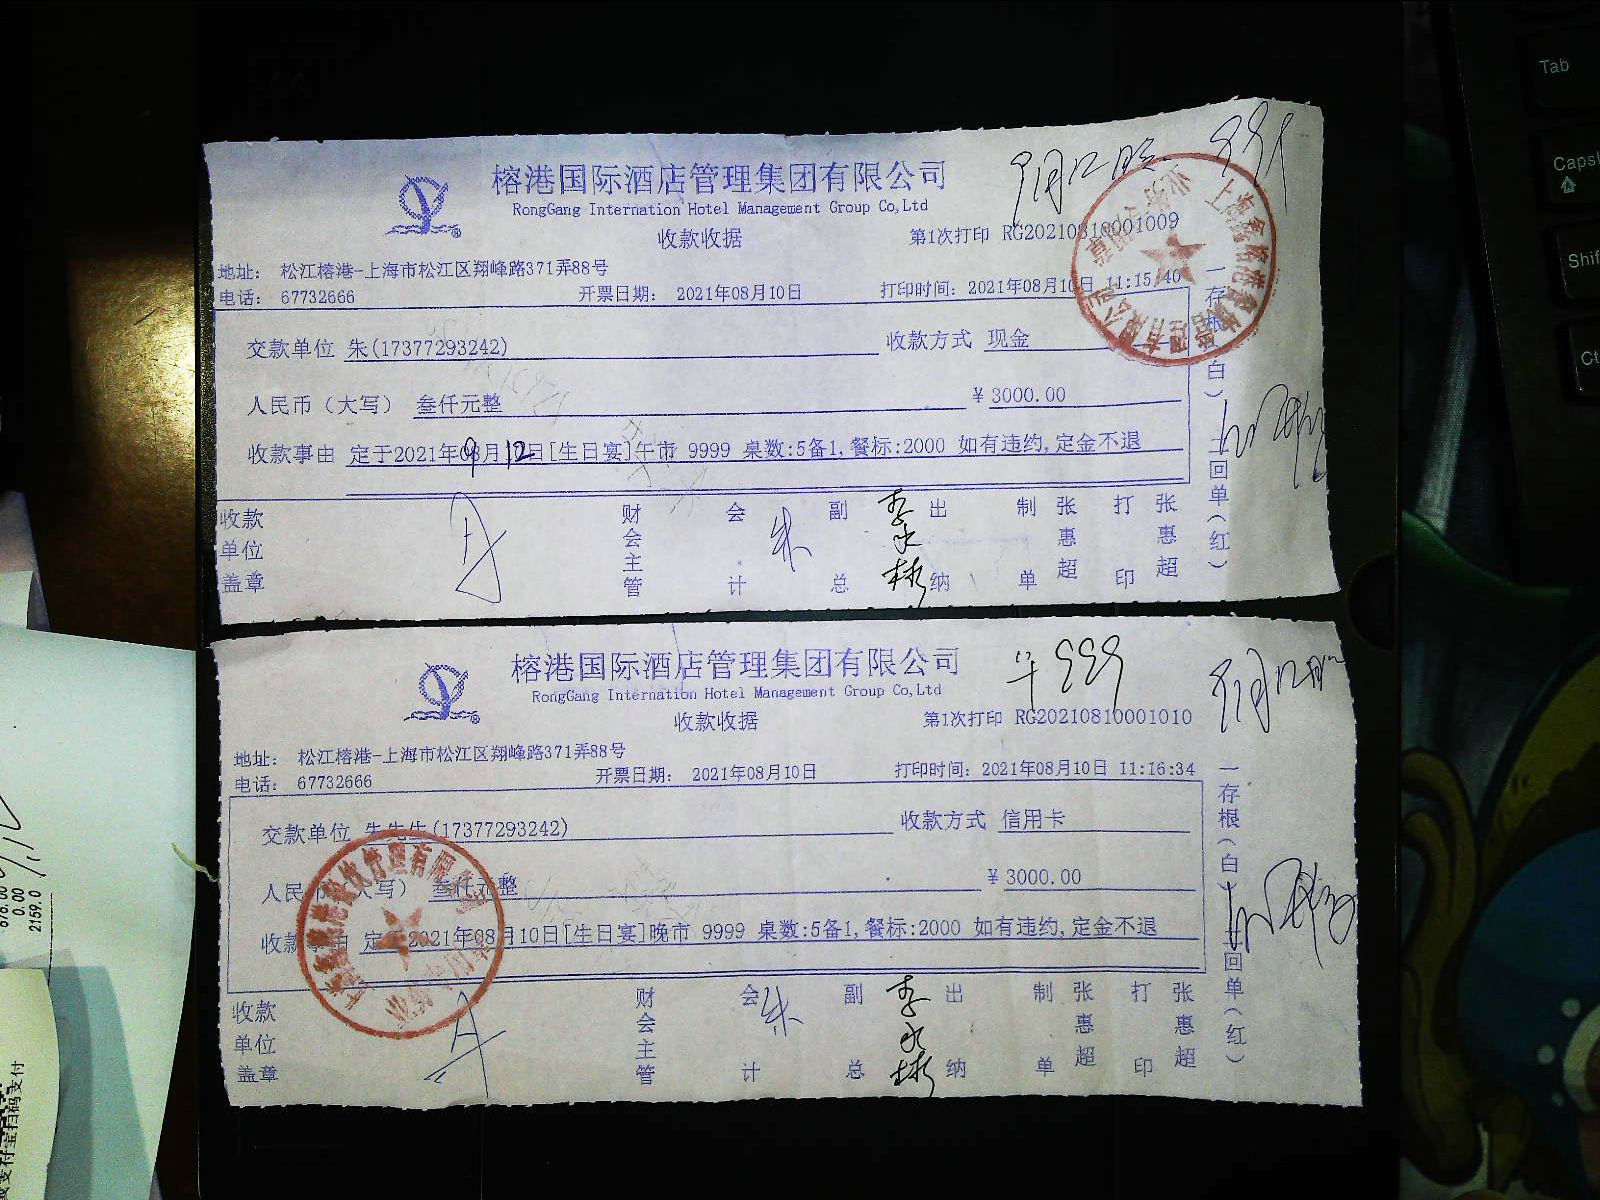 榕港国际酒店管理集团有限公司
RongGang Internation Hotel Management Group Co,Ltd
9月12日
收款收据
第1次打印 RG20210810001009
地址: 松江榕港-上海市松江区翔峰路371弄88号
电话: 67732666
开票日期: 2021年08月10日
打印时间: 2021年08月10日 11:15:40
交款单位 朱(17377293242)
收款方式 现金
人民币(大写) 叁仟元整
¥3000.00
收款事由 定于2021年09月12日[生日宴]午市 9999 桌数:5备1,餐标:2000 如有违约,定金不退
收款单位盖章
财会主管
会计 朱
副总 李永彬
出纳
制单 张惠超
打印 张惠超
一存根(白)
二回单(红)
榕港国际酒店管理集团有限公司
RongGang Internation Hotel Management Group Co,Ltd
午 999
9月12
收款收据
第1次打印 RG20210810001010
地址: 松江榕港-上海市松江区翔峰路371弄88号
电话: 67732666
开票日期: 2021年08月10日
打印时间: 2021年08月10日 11:16:34
交款单位 朱先生(17377293242)
收款方式 信用卡
人民币(大写) 叁仟元整
¥3000.00
收款事由 定于2021年08月10日[生日宴]晚市 9999 桌数:5备1,餐标:2000 如有违约,定金不退
收款单位盖章
财会主管
会计 朱
副总 李永彬
出纳
制单 张惠超
打印 张惠超
一存根(白)
二回单(红)
0.00
2159.0
支付宝扫码支付
Tab
Caps
Shif
Ct